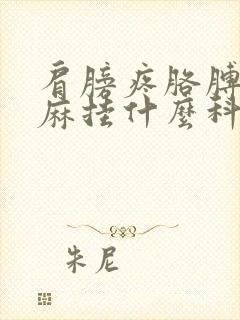 肩膀疼胳膊
麻挂什麼科
朱尼